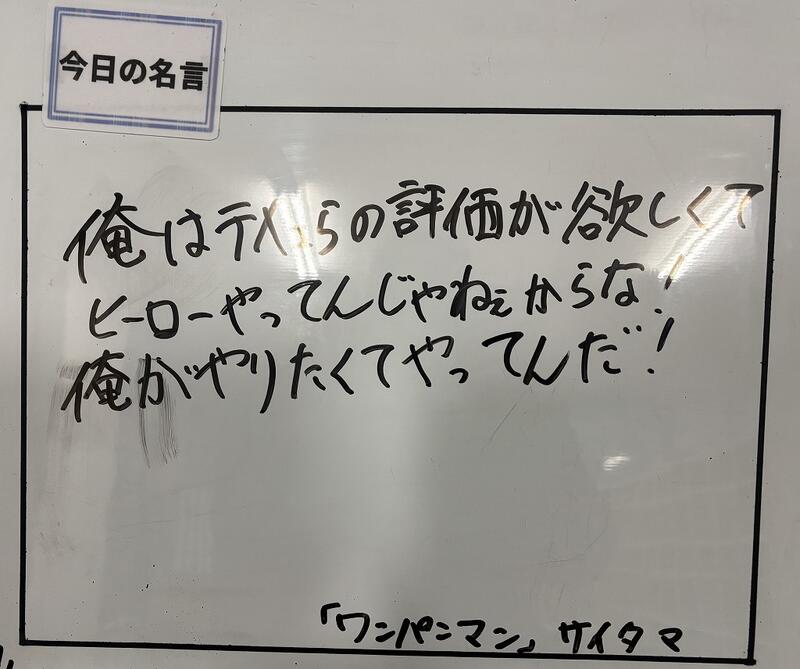 今日の名言
俺はテメェらの評価が欲しくて
ヒーローやってんじゃねぇからな!
俺がやりたくてやってんだ!
「ワンパンマン」サイタマ